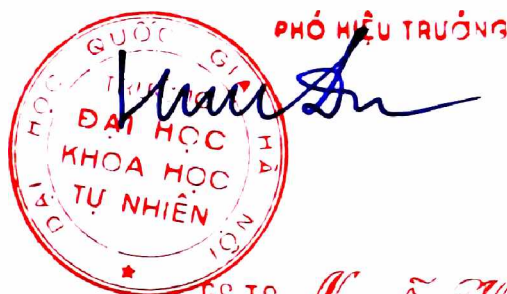 PHÓ HIỆU TRƯỞNG
ĐẠI HỌC QUỐC GIA HÀ NỘI
TRƯỜNG
ĐẠI HỌC
KHOA HỌC
TỰ NHIÊN